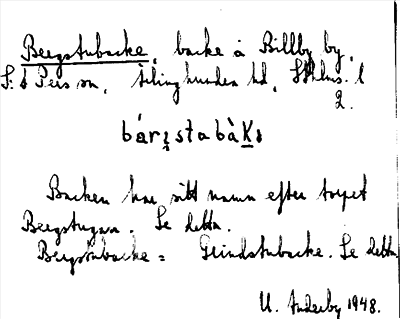 Bergstubacke, backe å Billby by,
S:t Pers sn, hd, Sthlms. l
2.
bár stabàK
Backen har sitt namn efter torpet
Bergstugan. Se detta.
Bergstubacke = Grindstubacke. Se detta
U. 1948.